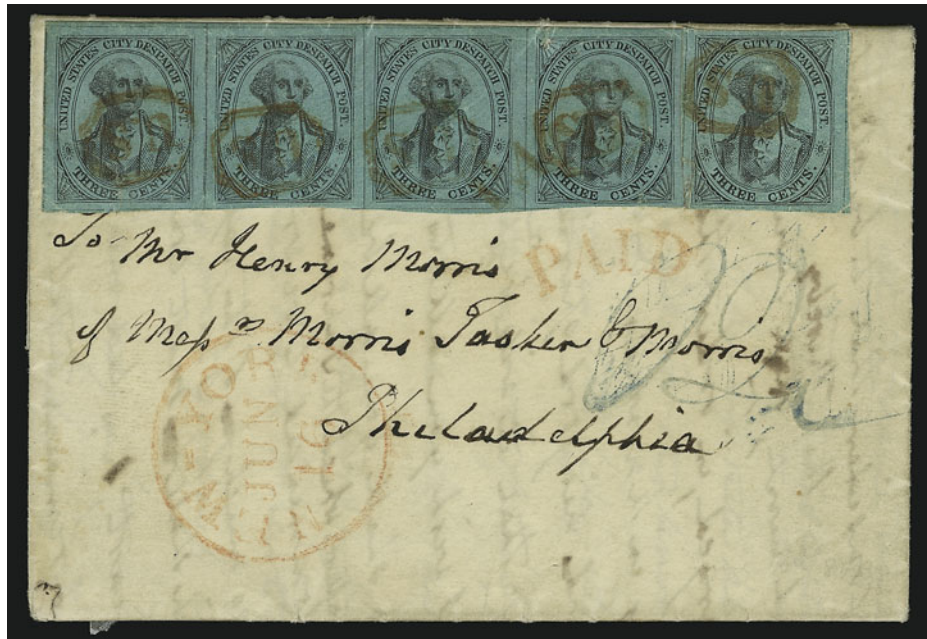 UNITED STATES CITY DESPATCH POST.
THREE CENTS.
UNITED STATES CITY DESPATCH POST.
THREE CENTS.
UNITED STATES CITY DESPATCH POST.
THREE CENTS.
UNITED STATES CITY DESPATCH POST.
THREE CENTS.
UNITED STATES CITY DESPATCH POST.
THREE CENTS.
PAID
To Mr Henry Morris
of Messrs Morris Tasker & Morris
Philadelphia
NEW YORK
JUN
16